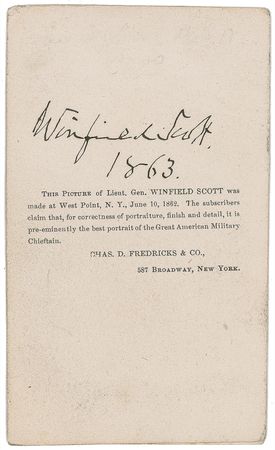 Winfield Scott.
1863.
THIS PICTURE of Lieut. Gen. WINFIELD SCOTT was
made at West Point, N. Y., June 10, 1862. The subscribers
claim that, for correctness of portraiture, finish and detail, it is
pre-eminently the best portrait of the Great American Military
Chieftain.
CHAS. D. FREDRICKS & CO.,
587 BROADWAY, NEW YORK.